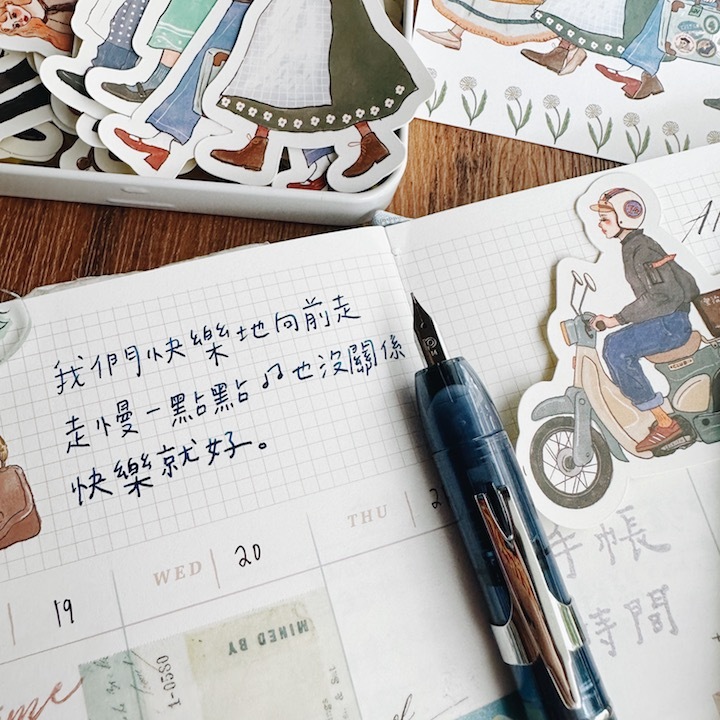 我們快樂地向前走
走慢一點點♫也沒關係
快樂就好。
THU
WED 20
19
手帳
時間
MINED BY
1-0580